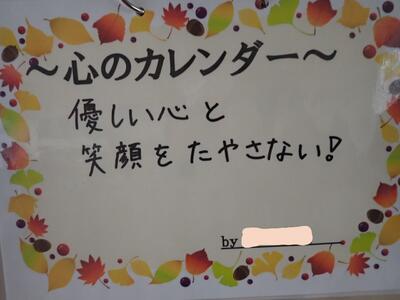 ～心のカレンダー～
優しい心と
笑顔をたやさない!
by